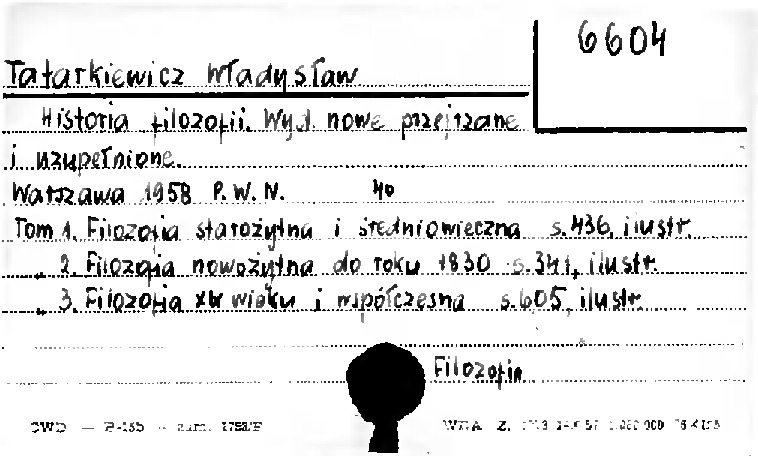 6604
Tatarkiewicz Władysław
Historia filozofii. Wyd. nowe przejrzane
i uzupełnione.
Warszawa 1958 P.W.N. 4o
Tom 1. Filozofia starożytna i średniowieczna s.436, ilustr.
„ 2. Filozofia nowożytna do roku 1830 s.341, ilustr.
„ 3. Filozofia XIX wieku i współczesna s.605, ilustr.
Filozofia